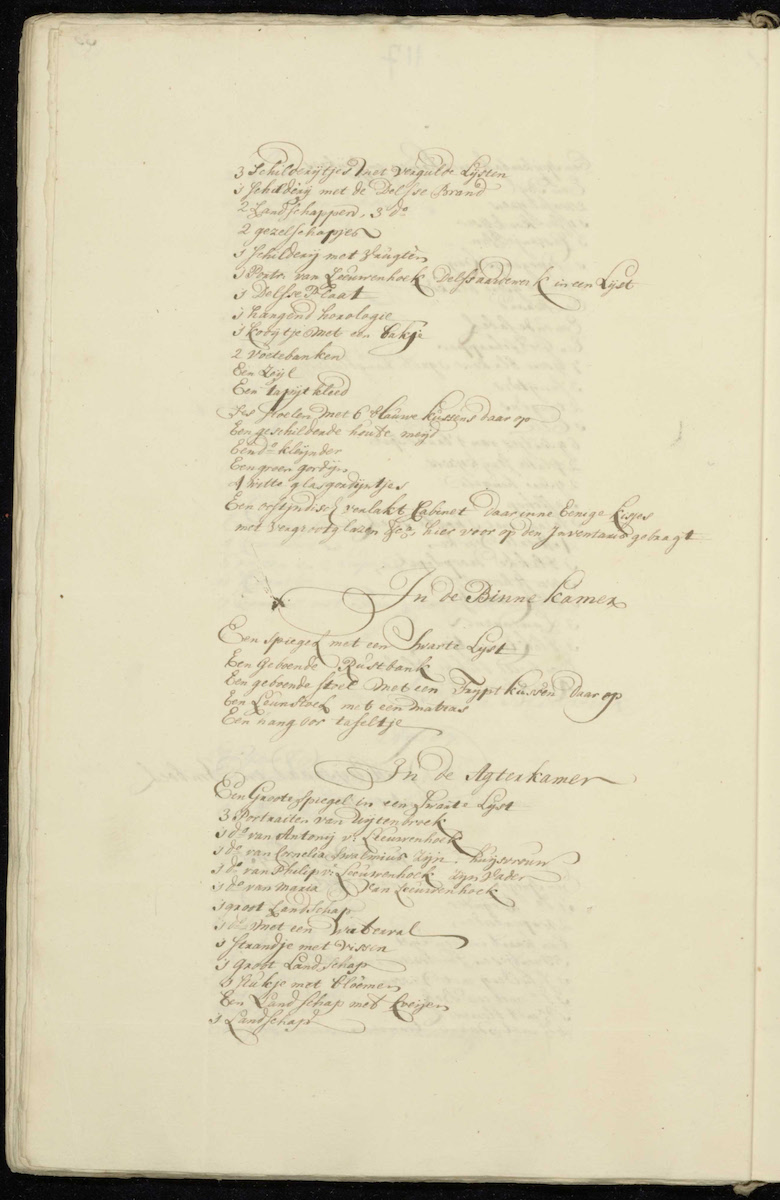 3 Schilderijtjes met vergulde Lijsten
1 schilderij met de Delfse Brand
2 Landschappen, 3 do
2 gezelschapjes
1 schilderij met
1 Portr. van Leeuwenhoek Delfs aardewerk in een Lijst
1 Delfse Plaat
1 hangend horologie
1 kooijtje met een bakje
2 voetebanken
Een
Een tapijt kleed
Ses stoelen met 6 blauwe kussens daar op
Een geschilderde houte meijd
Een do kleijnder
Een groen gordijn
4 witte glasgordijntjes
Een oostjndisch verlakt Cabinet daar inne Eenige kisjes
met vergrootglazen &ca, hier voor op den Inventaris gebragt
In de Binne kamer
Een spiegel met een Swarte Lijst
Een Geboende Rustbank
Een geboende stoel met een Trijpt kussen daar op
Een Leunstoel met een matras
Een hang oor tafeltje
In de Agterkamer
Een Groote Spiegel in een Swarte Lijst
3 Portraiten van Uijtenbroek
1 do van Antonij vn Leeuwenhoek
1 do van Cornelia Swalmius Zijn huijsvrouw
1 do van Philip vn Leeuwenhoek Zijn Vader
1 do van Maria van Leeuwenhoek
1 groot Landschap
1 do met een Waterval
1 strandje met vissen
1 Groot Landschap
stukje met bloemen
Een Landschap met
1 Landschap